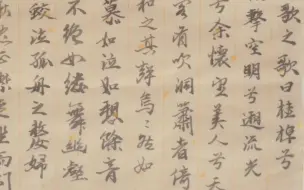 歌之歌曰桂棹兮
擊空明兮溯流光
兮余懷望美人兮天
客有吹洞簫者倚
和之其聲烏烏然如
慕如泣如訴餘音
不絕如縷舞幽壑
蛟泣孤舟之嫠婦
愀然正襟危坐而問